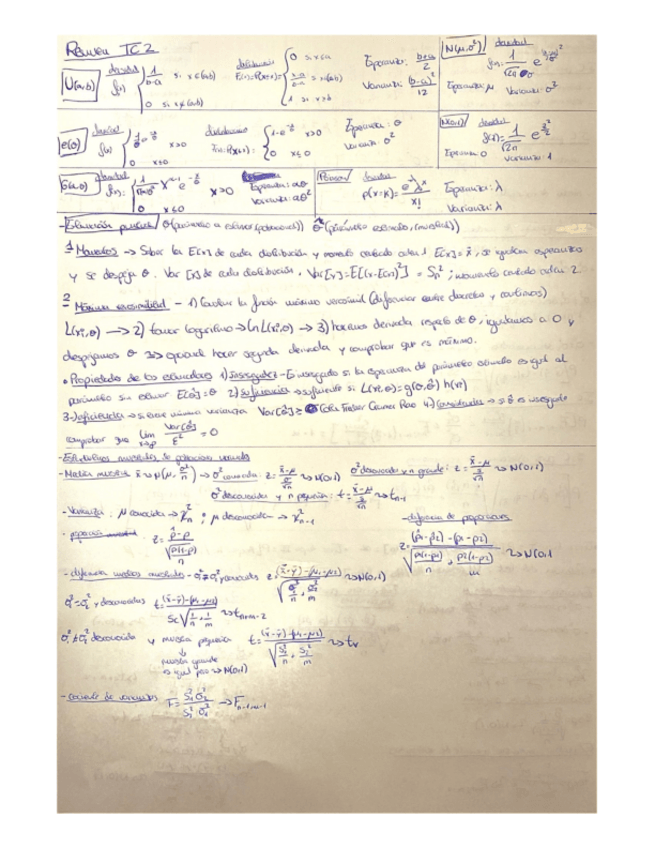 Resumen TC2
U(a,b) densidad f(x) { 1/(b-a) si x∈(a,b) ; 0 si x∉(a,b) distribución F(x)=P(X≤x)= { 0 si x<a ; (x-a)/(b-a) si x∈(a,b) ; 1 si x>b Esperanza: (b+a)/2 Varianza: (b-a)²/12
N(μ,σ²) densidad Esperanza: μ Varianza: σ²
e(θ) densidad f(x) x>0 ; 0 x≤0 distribución F(x)=P(X≤x)= { 1-e x>0 ; 0 x≤0 Esperanza: θ Varianza: θ²
N(0,1) densidad Esperanza 0 Varianza: 1
G(α,θ) densidad f(x)= x>0 ; 0 x≤0 Esperanza: αθ Varianza: αθ²
Poisson densidad p(x=k)= Esperanza: λ Varianza: λ
- Estimación puntual θ (parámetro a estimar (potencial)) θ̂ (parámetro estimado, (muestral))
1 Momentos → Saber la E[x] de cada distribución y momento centrado orden 1 E[x]=x̄, se igualan esperanzas
y se despeja θ. Var [x] de cada distribución. Var[x]=E[(x-E[x])²] = Sn²; momento centrado orden 2
2 Máxima verosimilitud - 1) Calcular la función máximo verosimil (diferenciar entre discretas y continuas)
L(xi,θ) → 2) tomar logaritmo → ln L(xi,θ) → 3) hacemos derivada respeto de θ, igualamos a 0 y
despejamos θ opcional hacer segunda derivada y comprobar que es máximo.
• Propiedades de los estimadores 1) Insesgadez - Es insesgado si la esperanza del parámetro estimado es igual al
parámetro sin estimar E[θ̂]=θ 2) Suficiencia → suficiente si L(xi,θ)=g(θ,θ̂) h(x)
3-) eficiencia → si tiene mínima varianza Var[θ̂]≥ Cota Cramer Rao 4-) Consistencia → si θ̂ es insesgado
comprobar que lim Var[θ̂]/ε² = 0
- Estadísticos muestrales de poblaciones normales
- Media muestral x̄ → N(μ, σ²/n) → σ² conocida: z = (x̄-μ)/(σ/√n) → N(0,1) σ² desconocida y n grande: z = (x̄-μ)/(s/√n) → N(0,1)
σ² desconocida y n pequeña: t = (x̄-μ)/(s/√n) → t n-1
- Varianza: μ conocida → χ² n ; μ desconocida → χ² n-1
- proporción muestral z = (p̂-p)/√(p(1-p)/n)
- diferencia de proporciones
z = ((p̂1-p̂2)-(p1-p2))/√(p1(1-p1)/n + p2(1-p2)/m) → N(0,1
- diferencia medias muestrales - σ1² ≠ σ2² y conocidas z = ((x̄-ȳ)-(μ1-μ2))/√(σ1²/n + σ2²/m) → N(0,1)
σ1²=σ2² y desconocidas t = ((x̄-ȳ)-(μ1-μ2))/(Sc√(1/n + 1/m)) → t n+m-2
σ1²≠σ2² desconocida y muestra pequeña t = ((x̄-ȳ)-(μ1-μ2))/√(S1²/n + S2²/m) → tv
muestra grande
es igual pero → N(0,1)
- Cociente de varianzas F = → F n-1,m-1